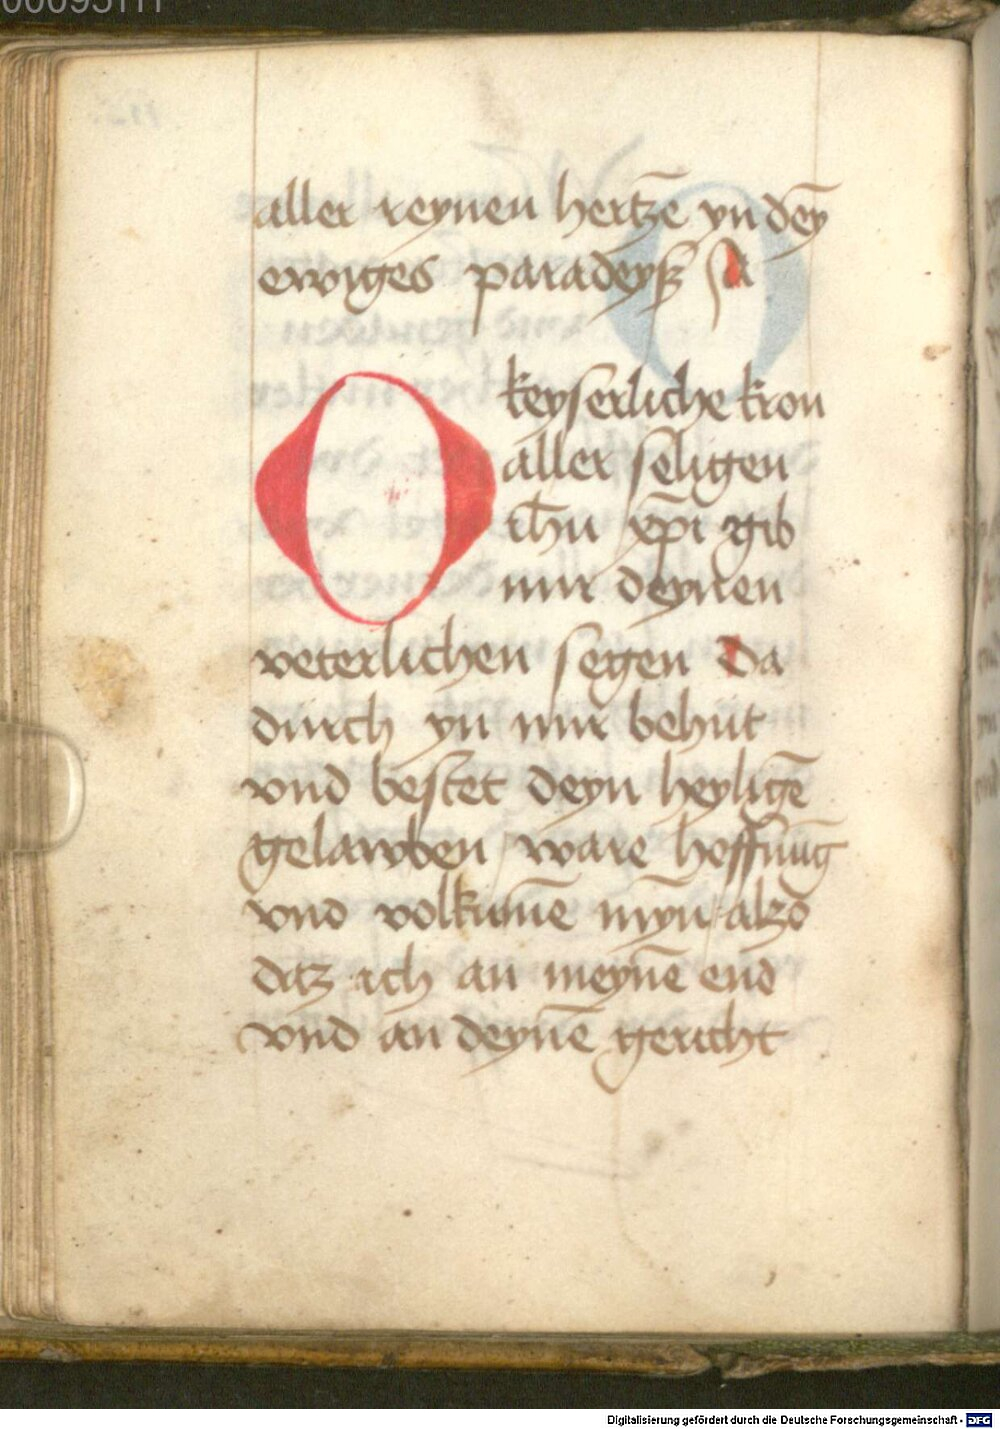 aller reynen hertzē yn dēy
ewiges paradeyß A
O keyserliche kron
aller seligen
ihū xp̄i gib
mir deynen
veterlichen segen Da
durch yn mir behut
vnd bestet deyn heyligē
gelawben / ware hoffnūg
vnd volkūmē mȳn / alzo
daz ich an meynē end
vnd an deynē gericht
Digitalisierung gefördert durch die Deutsche Forschungsgemeinschaft - DFG